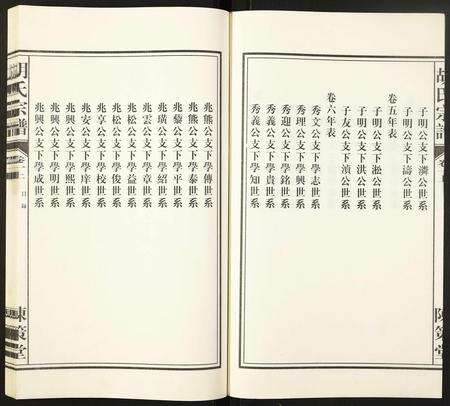 胡氏宗譜
卷一
陳策堂
子明公支下濟公世系
子明公支下濤公世系
卷五年表
子明公支下淞公世系
子明公支下洪公世系
子友公支下濆公世系
卷六年表
秀文公支下學志世系
秀理公支下學興世系
秀迎公支下學銘世系
秀義公支下學貴世系
秀義公支下學知世系
兆熊公支下學傳世系
兆熊公支下學泰世系
兆藜公支下學平世系
兆璜公支下學紹世系
兆雲公支下學章世系
兆松公支下學益世系
兆松公支下學俊世系
兆享公支下學校世系
兆安公支下學庠世系
兆興公支下學熙世系
兆興公支下學明世系
兆興公支下學成世系
胡氏宗譜
卷一
目錄
陳策堂